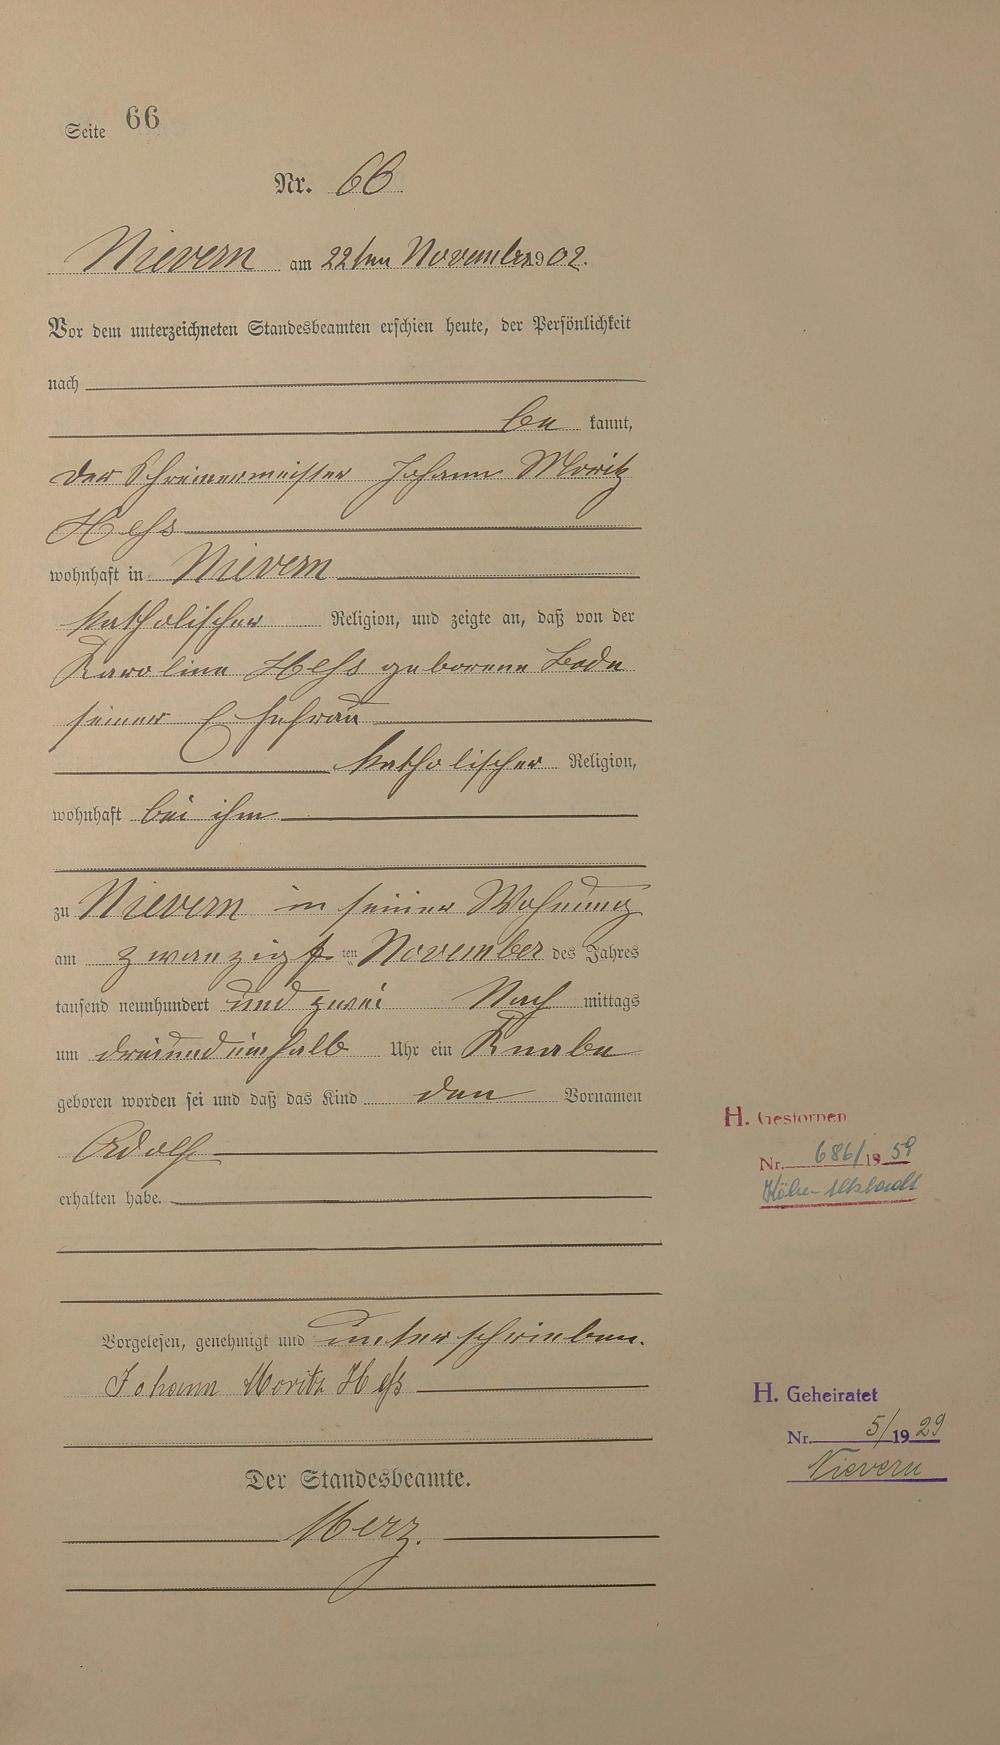 Seite 66
Nr. 66
Nievern am 22ten November 1902.
Vor dem unterzeichneten Standesbeamten erschien heute, der Persönlichkeit
nach
be kannt,
der Schreinermeister Johann Moritz
Heß
wohnhaft in Nievern
katholischer Religion, und zeigte an, daß von der
Karoline Heß geborene Bode
seiner Ehefrau
katholischer Religion,
wohnhaft bei ihm
zu Nievern in seiner Wohnung
am zwanzigsten November des Jahres
tausend neunhundert und zwei Nach mittags
um dreiundeinhalb Uhr ein Knabe
geboren worden sei und daß das Kind den Vornamen
Adolf
erhalten habe.
Vorgelesen, genehmigt und unterschrieben.
Johann Moritz Heß
Der Standesbeamte.
Merz.
H. Gestorben
Nr. 686/1959
Köln-
H. Geheiratet
Nr. 5/1929
Nievern